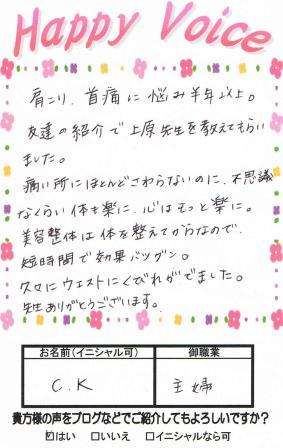 Happy Voice
肩こり、首痛に悩み半年以上。
友達の紹介で上原先生を教えてもらい
ました。
痛い所にほとんどさわらないのに、不思議
なくらい体も楽に、心はもっと楽に。
美容整体は体を整えてからなので、
短時間で効果バツグン。
久々にウエストにくびれがでました。
先生ありがとうございます。
お名前(イニシャル可) 御職業
C.K 主婦
貴方様の声をブログなどでご紹介してもよろしいですか?
☑はい □いいえ □イニシャルなら可